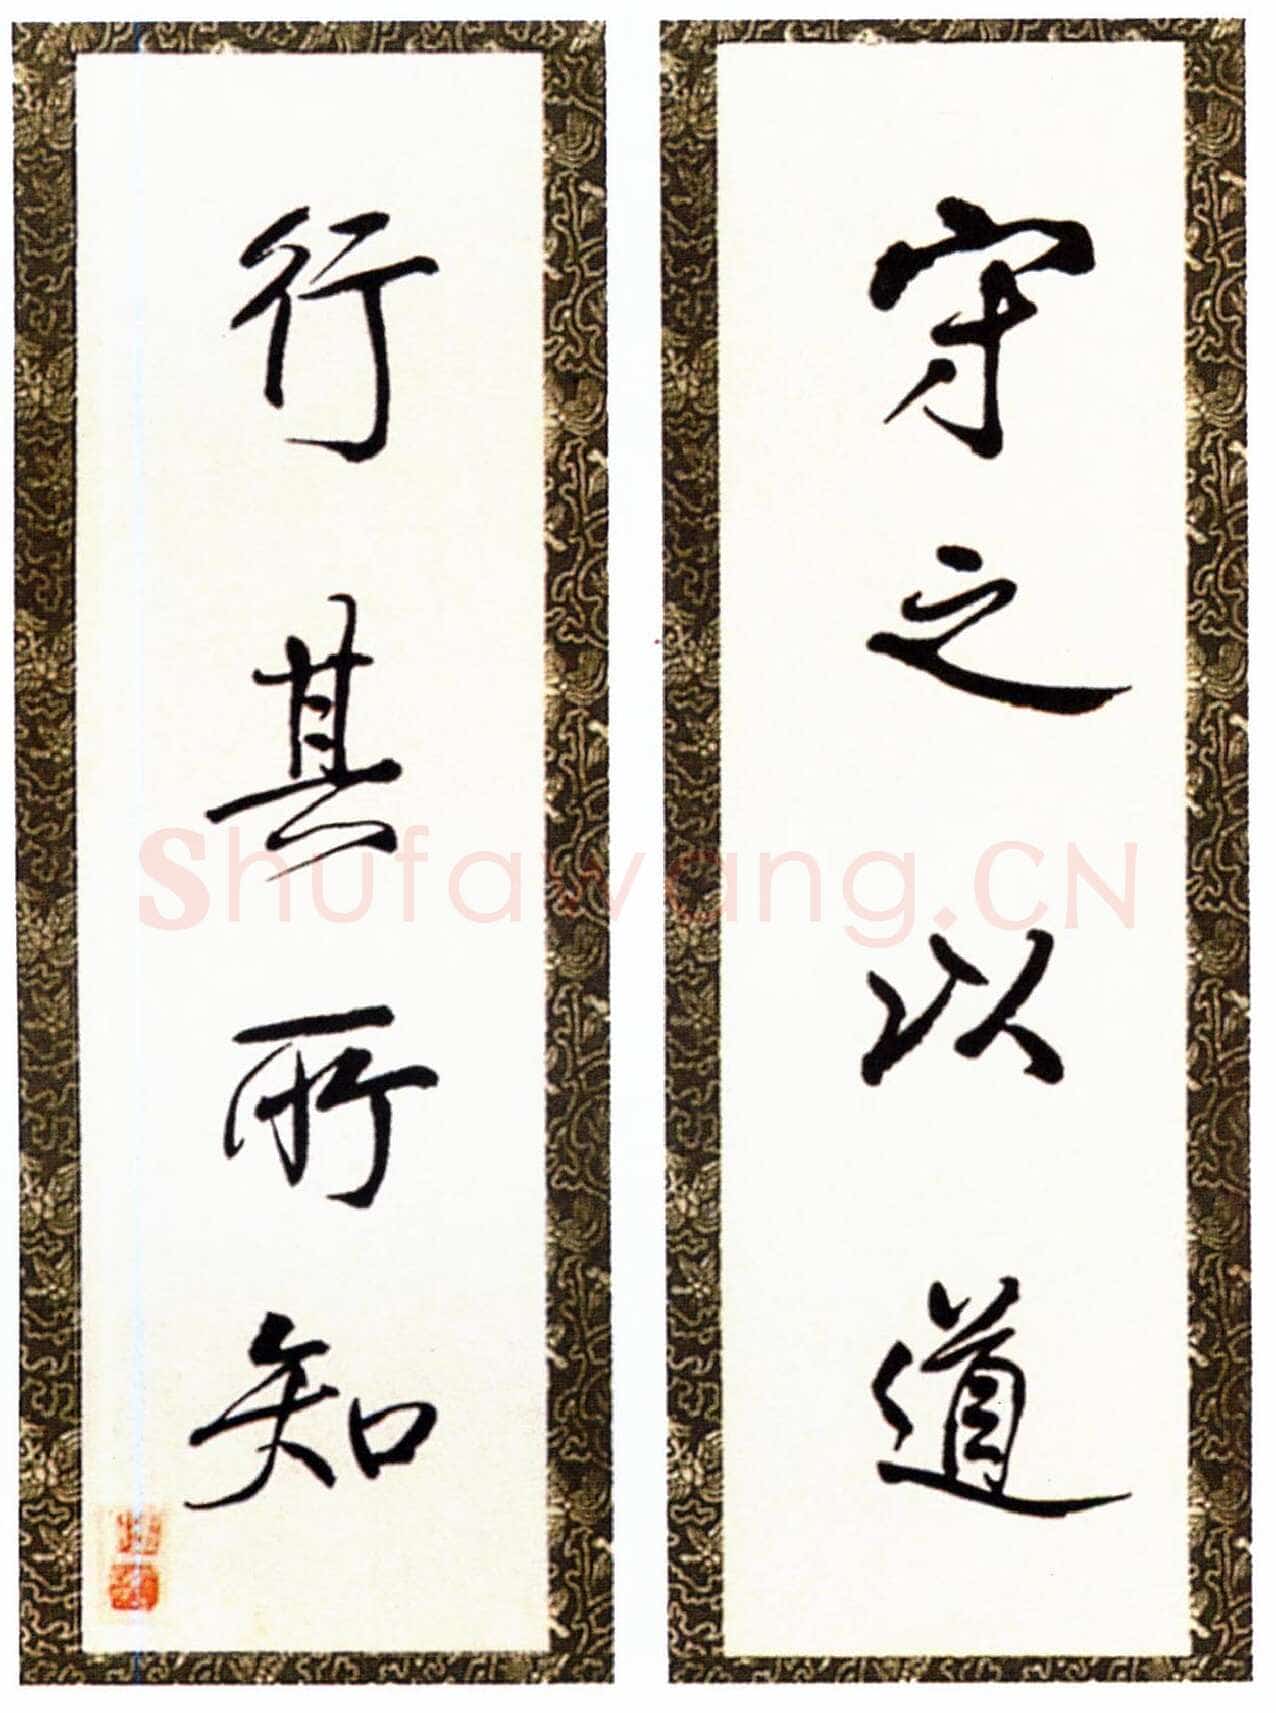 守之以道
行其所知
Shufawang.CN